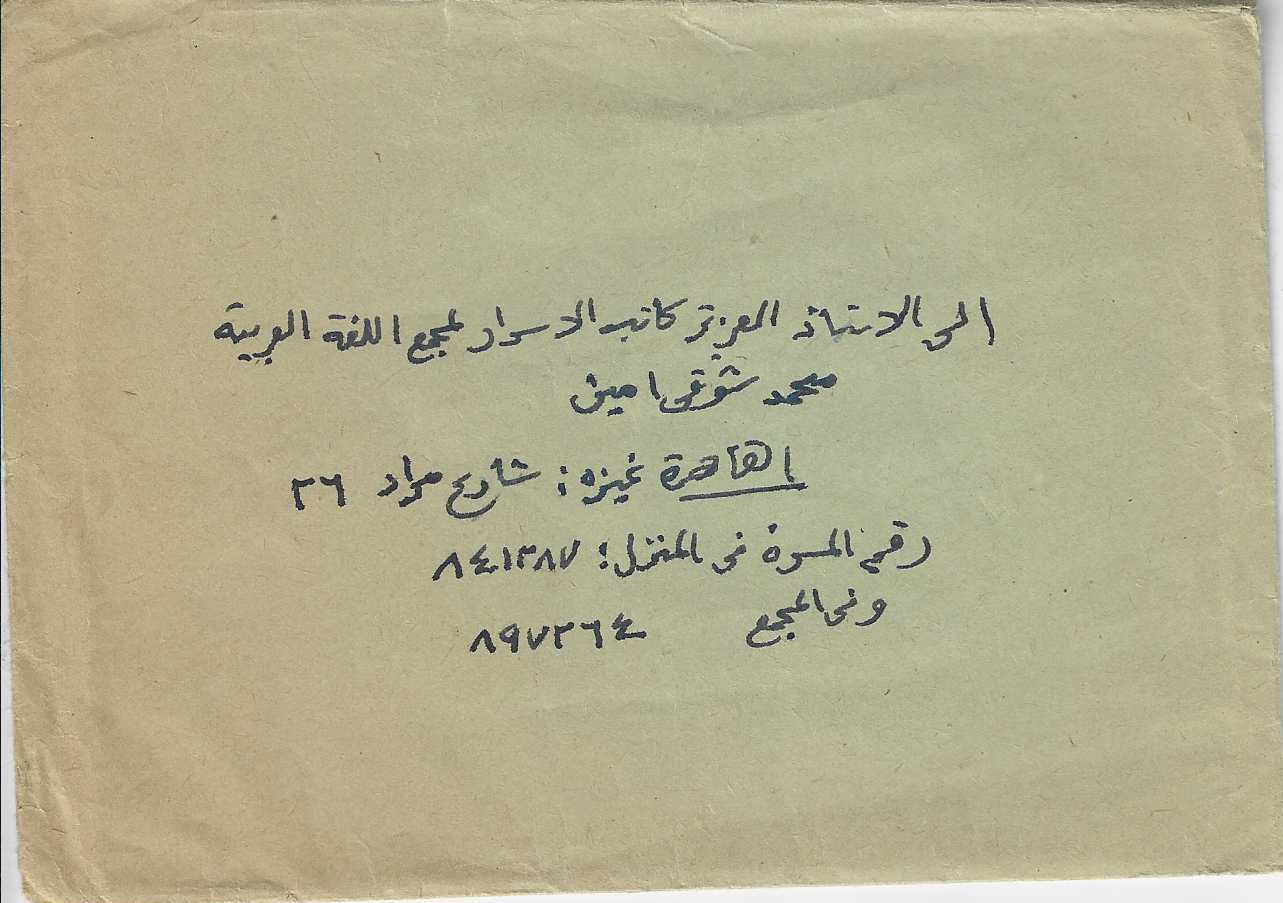 الى الاستاذ العزيز كاتب الاسرار لمجمع اللغة العربية
محمد شوقى امين
القاهرة غيزه: شارع مراد ٢٦
رقم المسرة فى المنزل: ٨٤١٣٨٧
وفى المجمع ٨٩٧٣٦٤